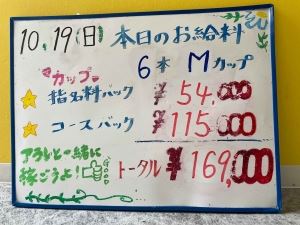 10.19(日) 本日のお給料
6本 Mカップ
カップ
指名料バック ¥54.000
コースバック ¥115.000
アラレと一緒に
稼ごうよ!
トータル ¥169,000